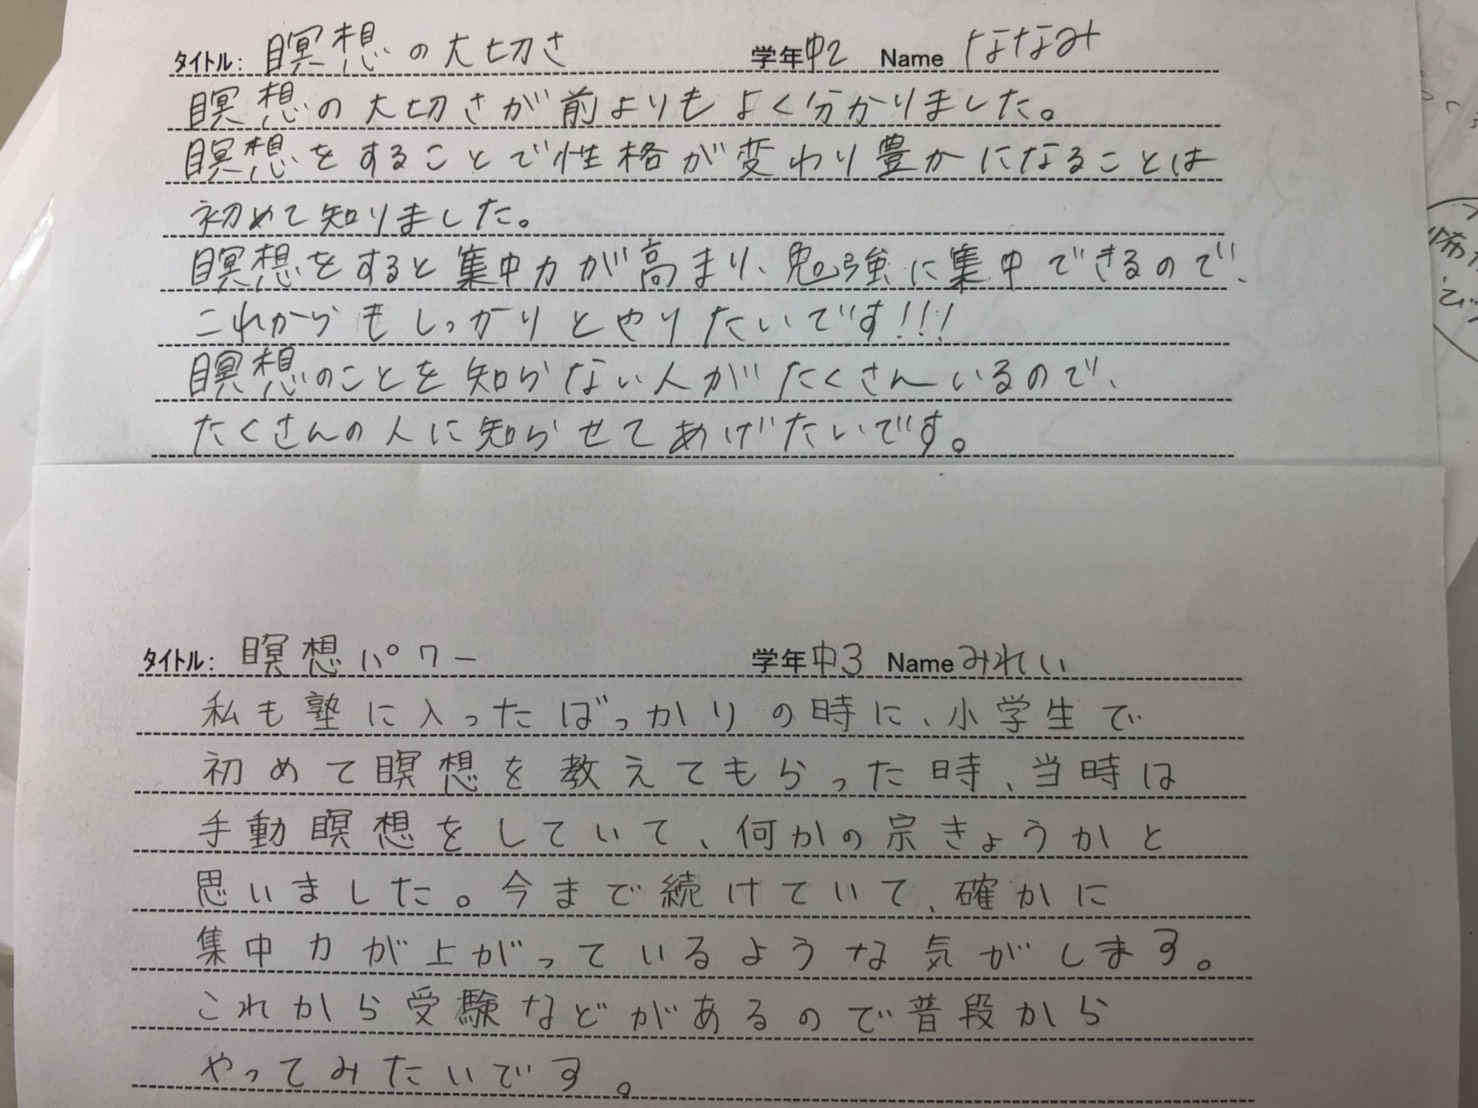 タイトル: 瞑想の大切さ 学年中2 Name ななみ
瞑想の大切さが前よりもよく分かりました。
瞑想をすることで性格が変わり豊かになることは
初めて知りました。
瞑想をすると集中力が高まり、勉強に集中できるので、
これからもしっかりとやりたいです!!!
瞑想のことを知らない人がたくさんいるので、
たくさんの人に知らせてあげたいです。
タイトル: 瞑想パワー 学年中3 Name みれい
私も塾に入ったばっかりの時に、小学生で
初めて瞑想を教えてもらった時、当時は
手動瞑想をしていて、何かの宗きょうかと
思いました。今まで続けていて、確かに
集中力が上がっているような気がします。
これから受験などがあるので普段から
やってみたいです。